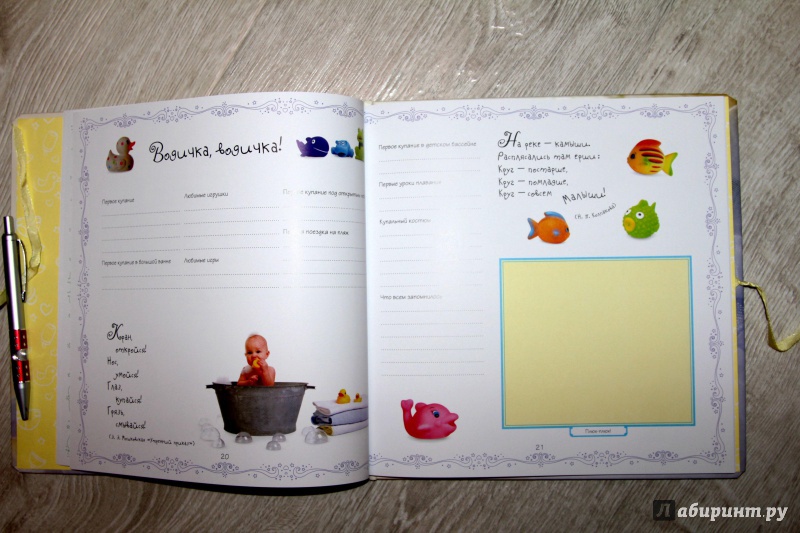 Водичка, водичка!
Первое купание
Любимые игрушки
Первое купание под открытым
поездка на пляж
Первое купание в большой ванне
Любимые игры
Кран,
откройся!
Нос,
умойся!
Глаз,
купайся!
Грязь,
смывайся!
20
Первое купание в детском бассейне
Первые уроки плавания
Купальный костюм
Что всем запомнилось
На реке — камыши.
Расплясались там ерши:
Круг — постарше,
Круг — помладше,
Круг — совсем
малыши!
21
Лабиринт.ру